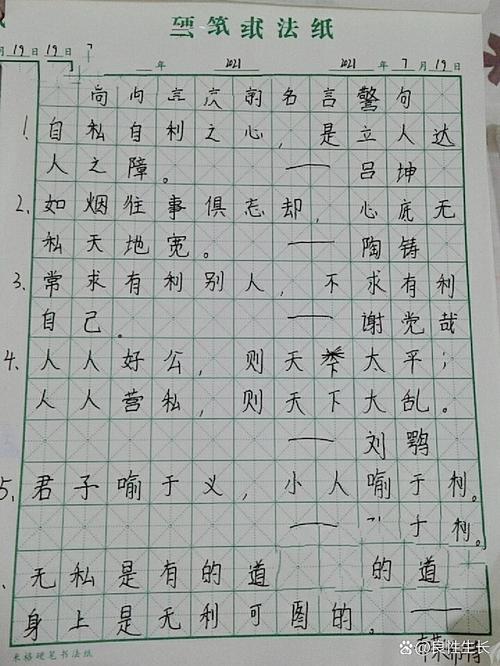 硬笔书法纸
月19日 19日 7
年 2021 2021年7月19日
名言警句
1. 自私自利之心，是立人达
人之障。——吕坤
2. 如烟往事俱忘却，心底无
私天地宽。——陶铸
3. 常求有利别人，不求有利
自己。——谢觉哉
4. 人人好公，则天 太平；
人人营私，则天下大乱。
——刘鹗
5. 君子喻于义，小人喻于柯。
——于柯。
无私是有的道 的道
身上是无利可图的。——
米格硬笔书法纸
@良性生长